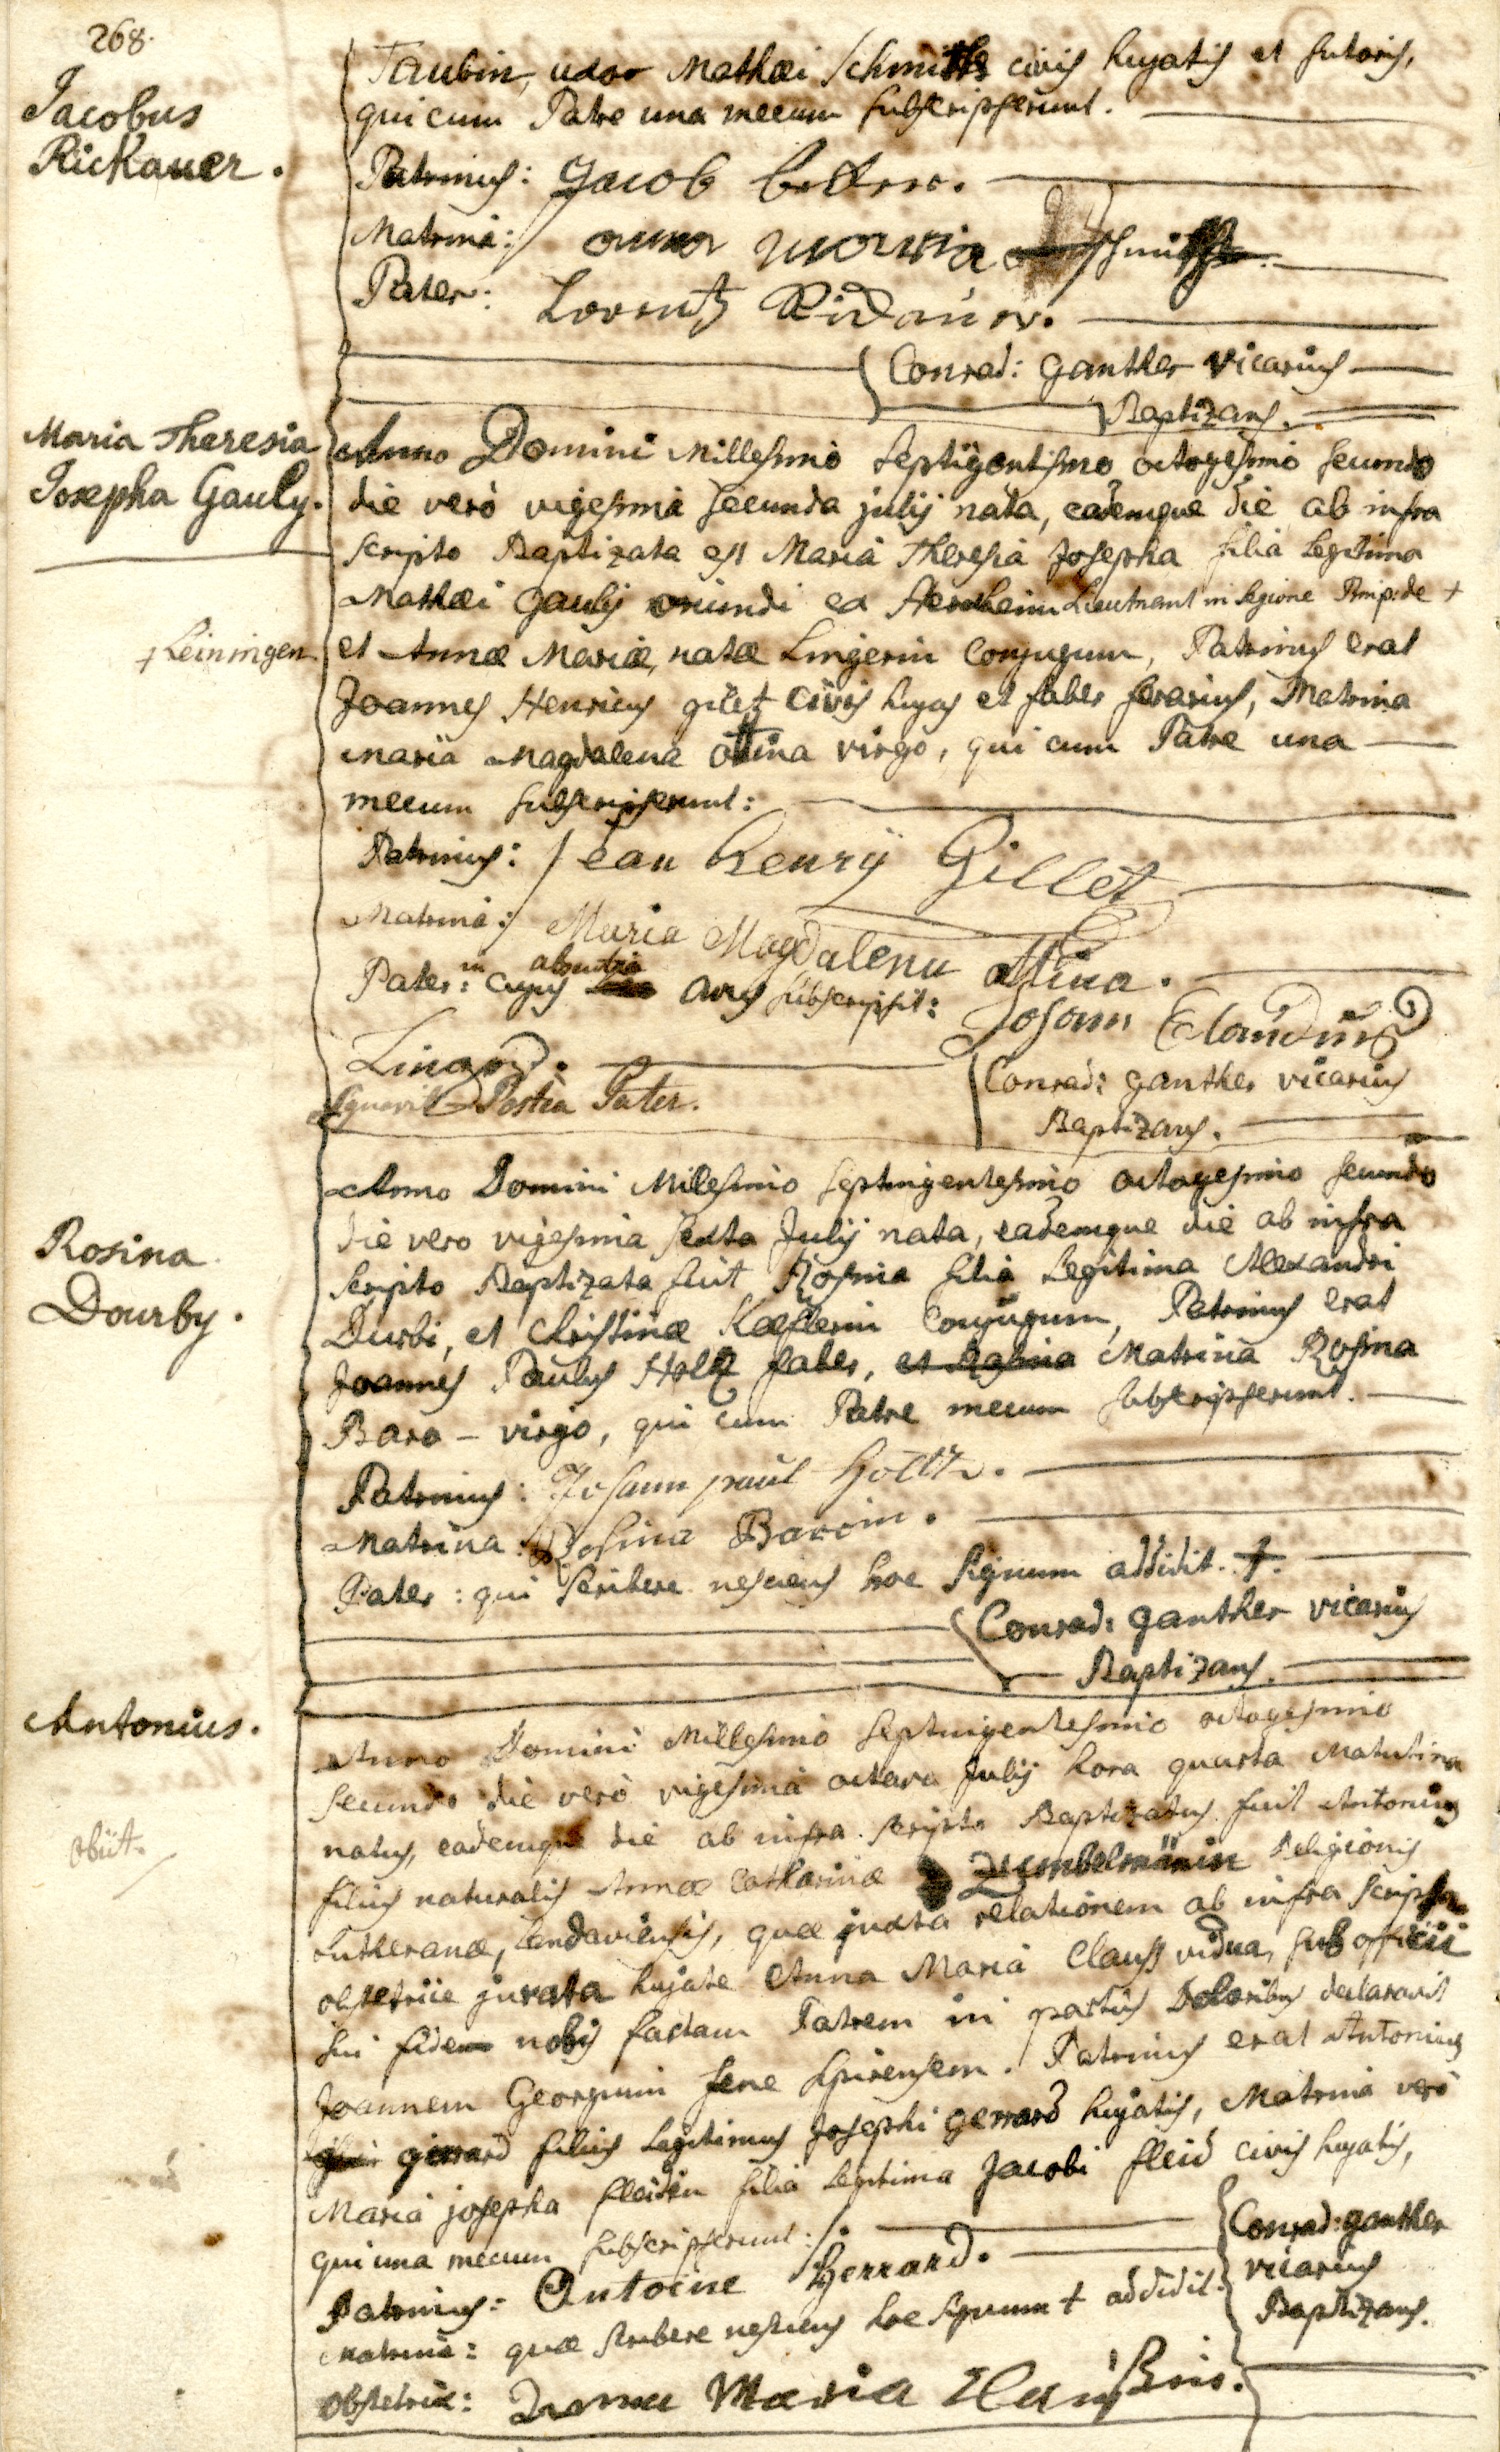 268.
Jacobus
Rickauer.
Taubin, uxor Mathæi Schmitts civis hujatis et sutoris,
qui cum Patre una mecum subscripserunt.
Patrinus: Jacob
Matrina: anna maria Schmitt
Pater: Lorentz Rickauer.
Conrad: Ganther vicarius
Baptizans.
Maria Theresia
Josepha Gauly.
Anno Domini Millesimo septigentismo octogesimo secundo
die verò vigesima secunda julij nata, eademque die ab infra
scripto Baptizata est Maria Theresia Josepha filia legitima
Mathæi Gauly oriundi ex Herxheim Lieutnant in legione Prinp: de +
+ Leiningen
et Annæ Mariæ, natæ Lingerin Conjugum, Patrinus erat
Joannes Henricus gilet civis hujas et faber ferarius, Matrina
maria Magdalena ottina virgo, qui cum Patre una
mecum subscripserunt:
Patrinus: Jean henry Gillet
Matrina: Maria Magdalena ottina.
Pater: cujus in absentia avus subscripsit: Johann Claudius
Lingerd.
Signavit Postea Pater.
Conrad: ganther vicarius
Baptizans.
Rosina
Dourby.
Anno Domini Milesimo septingentesimo octogesimo secundo
die vero vigesima sexta Julij nata, eademque die ab infra
scripto Baptizata fuit Rosina filia Legitima Alexandri
Durbi, et Christinæ Kæflerin Conjugum, Patrinus erat
Joannes Paulus Holtz faber, et Regina Matrina Rosina
Baro - virgo, qui cum Patre mecum subscripserunt.
Patrinus: Johann paul holtz.
Matrina: Rosina Baroin.
Pater: qui scribere nesciens hoc signum addidit. +.
Conrad: ganther vicarius
Baptizans.
Antonius.
obiit
Anno Domini Millesimo septuigentesimo octogesimo
secundo die verò vigesima octava Julij hora quarta Matutina
natus, eademque die ab infra scripto Baptizatus fuit Antonius
filius naturalis Annæ Catharinæ Zumbelmänin religionis
Lutheranæ, Landaviensis, quæ juxta relationem ab infra scripta
obstetrice jurata hujate Anna Maria Clauss vidua, sub officii
sui fidem nobis factam Patrem in partus Doloribus declaravit
Joannem Georgium fene spirensem. Patrinus erat Antonius
gerrard filius Legitimus Josephi gerrard hujatis, Matrina verò
Maria josepha fleiden filia legitima Jacobi fleid civis hujatis,
qui una mecum subscripserunt:/.
Patrinus: Antoine Gerrard.
Matrina: quæ scribere nesciens hoc signum + addidit.
Obstetrix: Anna Maria Clausßin.
Conrad: ganther
vicarius
Baptizans.